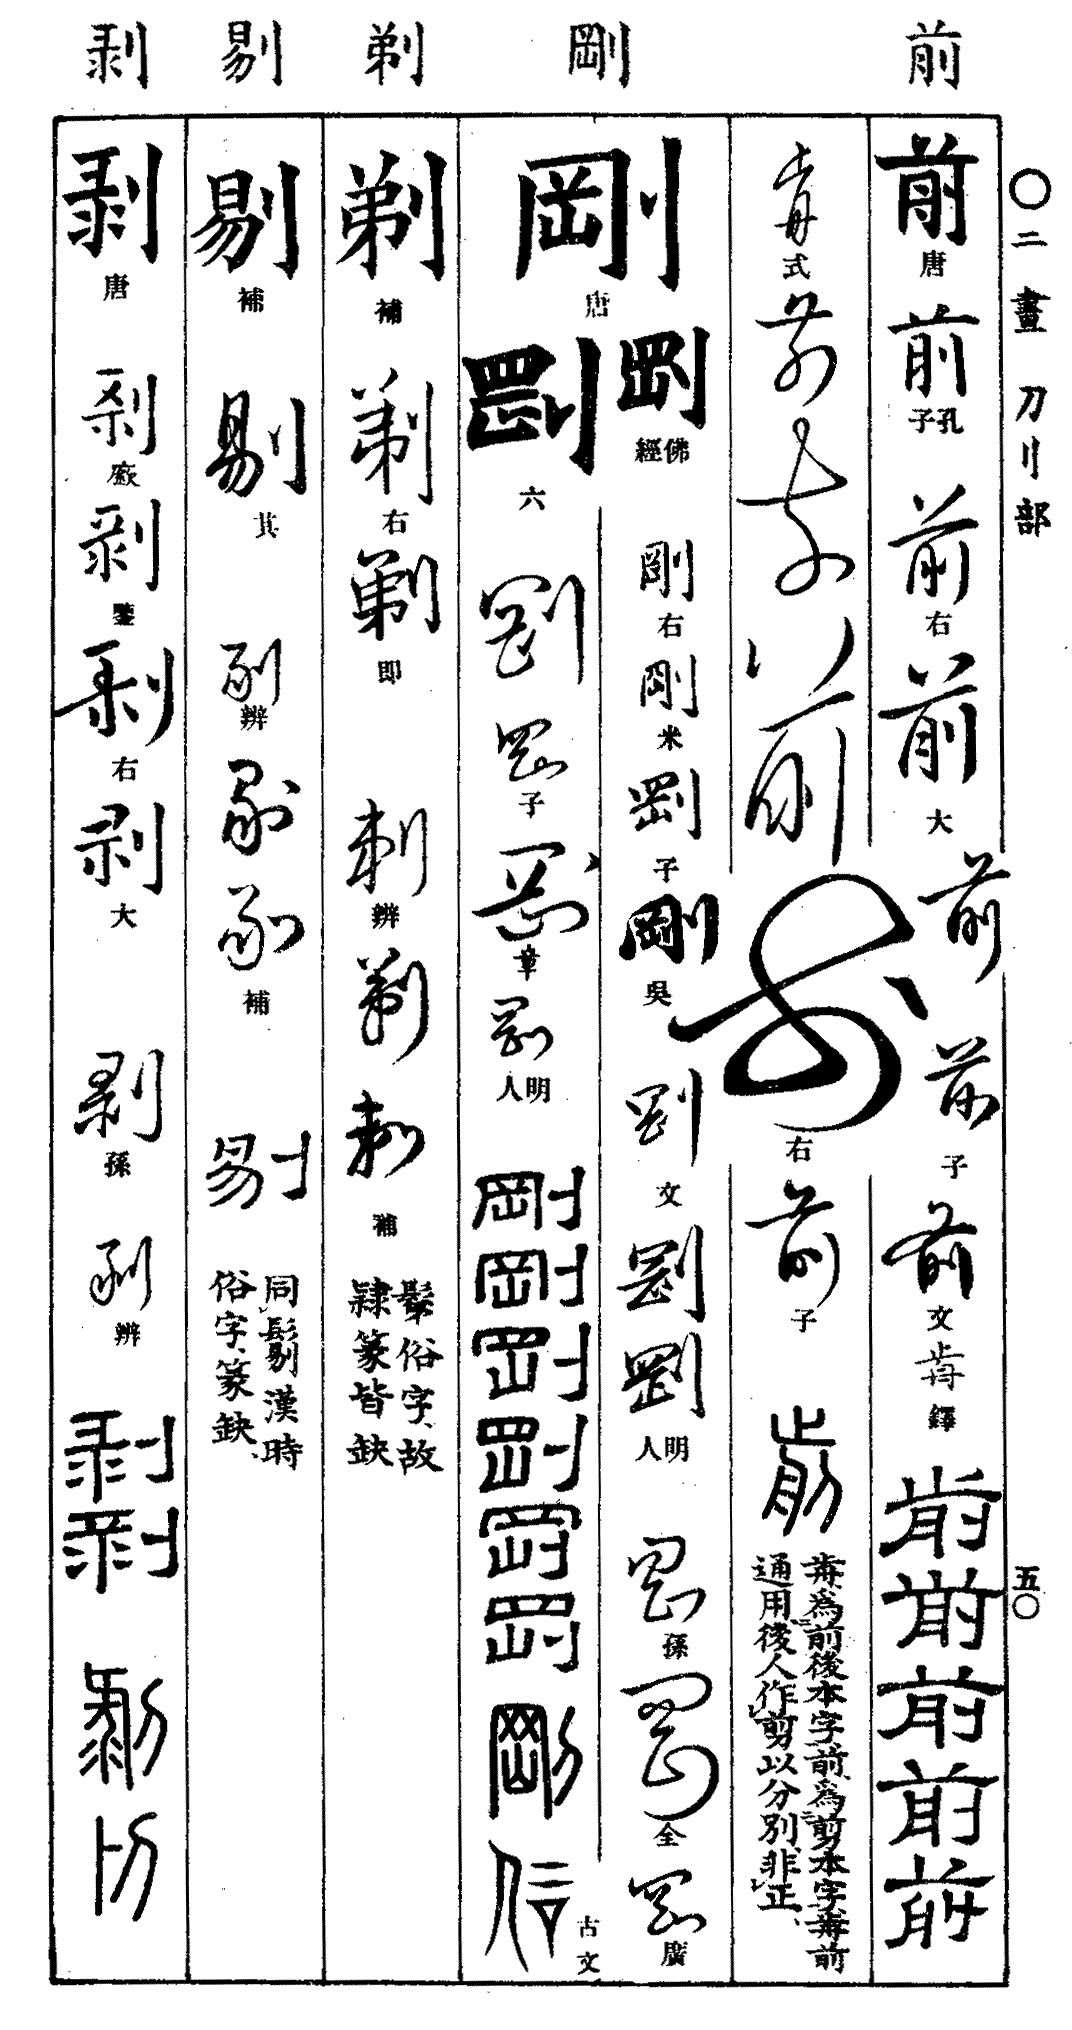 前
剛
剃
剔
剥
○二畫 刀刂部
五〇
前 唐
前 孔子
前 右
前 大
前
前 子
前 文
歬 鐸
前
前
前
前
前
歬 式
前
前
前
前 右
前 子
前
歬、爲前後本字、前、爲剪本字、歬前
通用、後人作剪以分別、非正、
剛 唐
剛 佛經
剛 右
剛 米
剛 子
剛 吳
剛 文
剛
剛 明人
剛 孫
剛 全
剛 廣
剛 六
剛
剛 子
剛 章
剛 明人
剛
剛
剛
剛
剛
剛
剛
古文
剃 補
剃 右
剃 即
剃 辨
剃
剃 補
鬀俗字、故
隸篆皆缺
剔 補
剔 其
剔 辨
剔
剔 補
剔
同鬄漢時
俗字、篆缺、
剥 唐
剥 廠
剥 鑒
剥 右
剥 大
剥 孫
剥 辨
剥
剥
剥